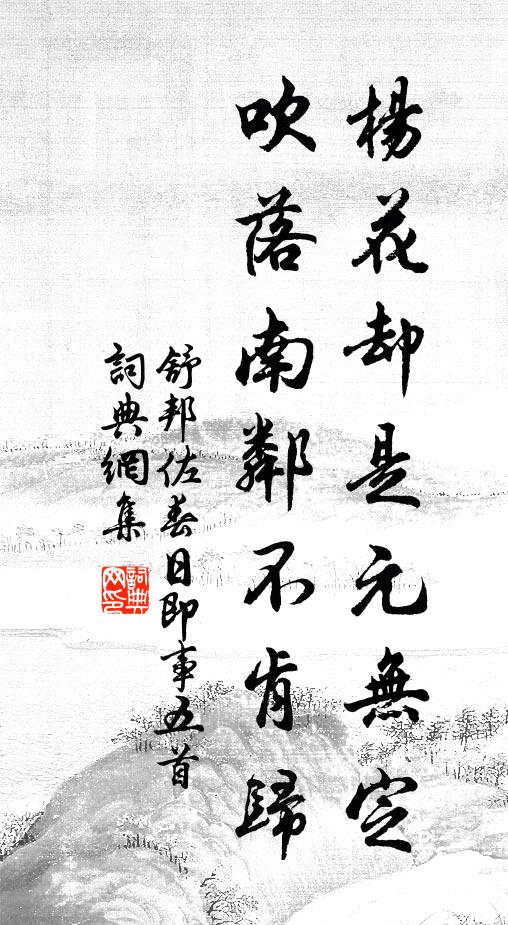 楊花却是元無定
吹落南鄰不肯歸
舒邦佐春日即事五首
詞典網集
詞典網印